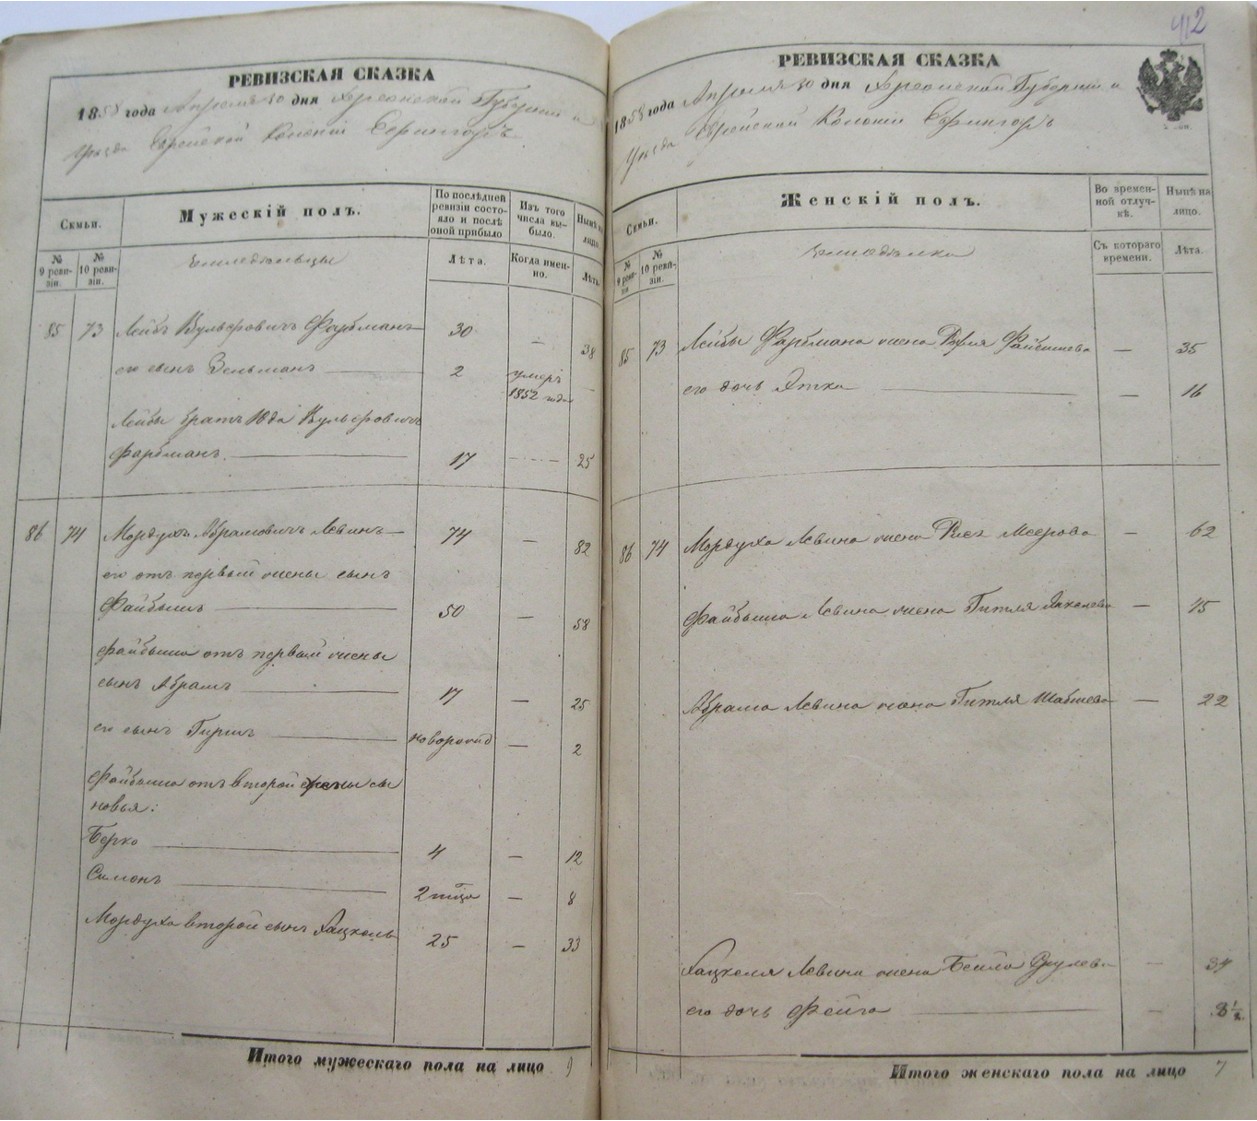 РЕВИЗСКАЯ СКАЗКА
1858 года Апреля 30 дня Херсонской Губернии и
Уезда Еврейской Колонии Ефингорь
Семьи.
№ 9 ревизіи.
№ 10 ревизіи.
Мужескій полъ.
По послѣдней
ревизіи состо-
яло и послѣ
оной прибыло
Лѣта.
Изъ того
числа вы-
было.
Когда имен-
но.
Нынѣ на
лицо.
Лѣта.
Земледѣльцы
85 73 Лейбъ Вульфовичъ Фарбманъ 30 — 38
его сынъ Зельманъ 2 умеръ 1852 года —
Лейбы братъ Юда Вульфовичъ
Фарбманъ. 17 — 25
86 74 Мордухъ Абрамовичъ Левинъ 74 — 82
его отъ первой жены сынъ
Файбишъ 50 — 58
Файбиша отъ первой жены
сынъ Абрамъ 17 — 25
его сынъ Гиршъ новорожд — 2
Файбиша отъ второй жены сы
новья:
Берко 4 — 12
Симонъ 2 — 8
Мордуха второй сынъ Хацкель 25 — 33
Итого мужескаго пола на лицо 9
412
РЕВИЗСКАЯ СКАЗКА
1858 года Апреля 30 дня Херсонской Губернии и
Уезда Еврейской Колонии Ефингорь
Семьи.
№ 9 ревизіи
№ 10 ревизіи.
Женскій полъ.
Во времен-
ной отлуч-
кѣ.
Съ котораго
времени.
Нынѣ на
лицо.
Лѣта.
85 73 Лейбы Фарбмана жена Файбишева — 35
его дочь Ятка — 16
86 74 Мордуха Левина жена Меерова — 62
Файбиша Левина жена Гитля — 45
Абрама Левина жена Гитля — 22
Хацкеля Левина жена Бейла — 34
его дочь Фейга — 8½
Итого женскаго пола на лицо 7